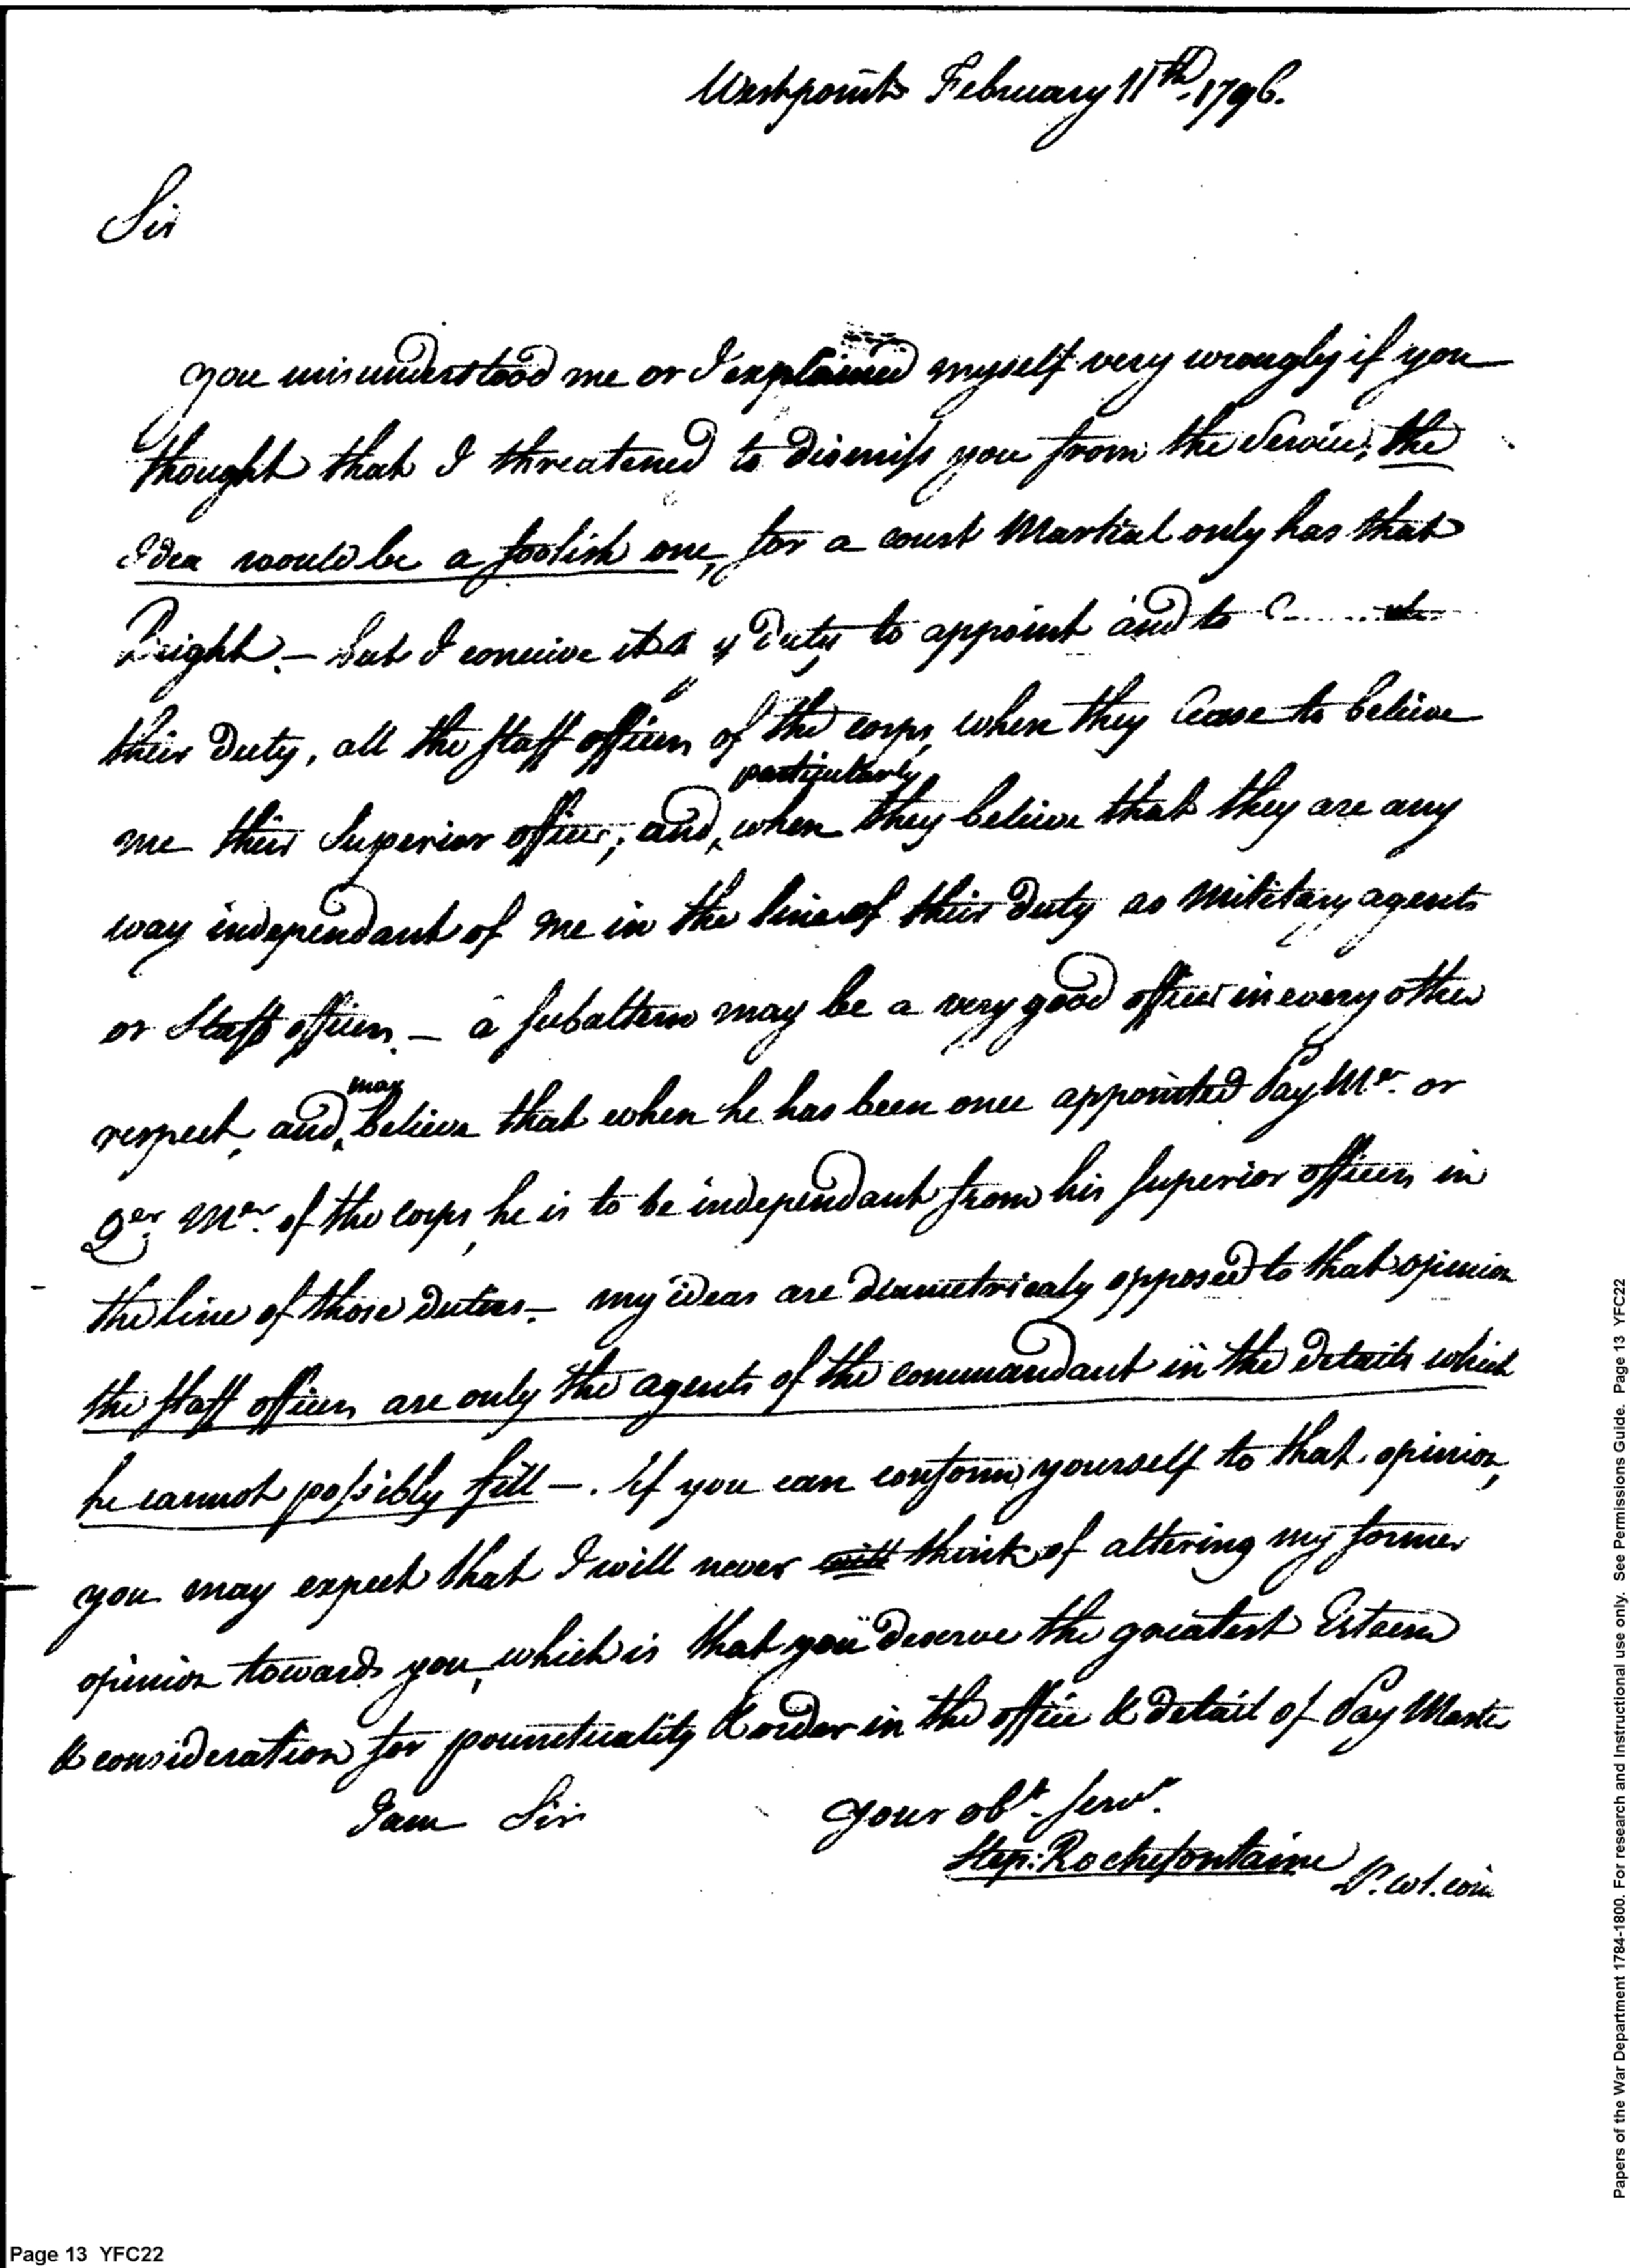 Westpoint February 11th. 1796.
Sir
you misunderstood me or I explained myself very wrongly if you
thought that I threatened to dismiss you from the Service, the
Idea would be a foolish one, for a court Martial only has that
Right. — but I conceive it my Duty, to appoint and to
their Duty, all the staff officers of the corps, when they Cease to believe
me their Superior officer; and, particularly when they believe that they are any
way independant of me in the line of their Duty as Military agents
or Staff officers. — a subaltern may be a very good officer in every other
respect, and may believe that when he has been once appointed Pay Mer. or
Qer. Mer. of the corps, he is to be independant from his superior officers in
the line of those duties — my ideas are diametricaly opposed to that opinion
the staff officers are only the agents of the commandant in the details which
he cannot possibly fill —. If you can conform yourself to that opinion,
you may expect that I will never will think of altering my former
opinion towards you, which is that you deserve the greatest Esteem
& consideration for pounctuality & order in the office & detail of Pay Master
I am Sir your obt. servt.
Step: Rochefontaine
Page 13 YFC22
Papers of the War Department 1784-1800. For research and Instructional use only. See Permissions Guide. Page 13 YFC22